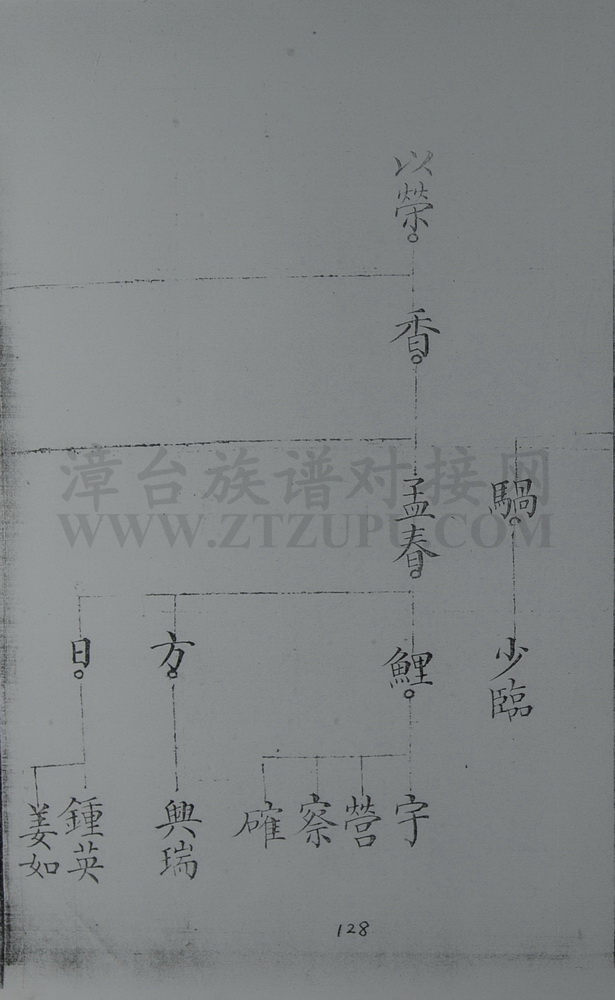 以榮
香
孟春
騧
鯉
方
日
少臨
宇
營
察
確
興瑞
鍾英
姜如
漳台族谱对接网
WWW.ZTZUPU.COM
128